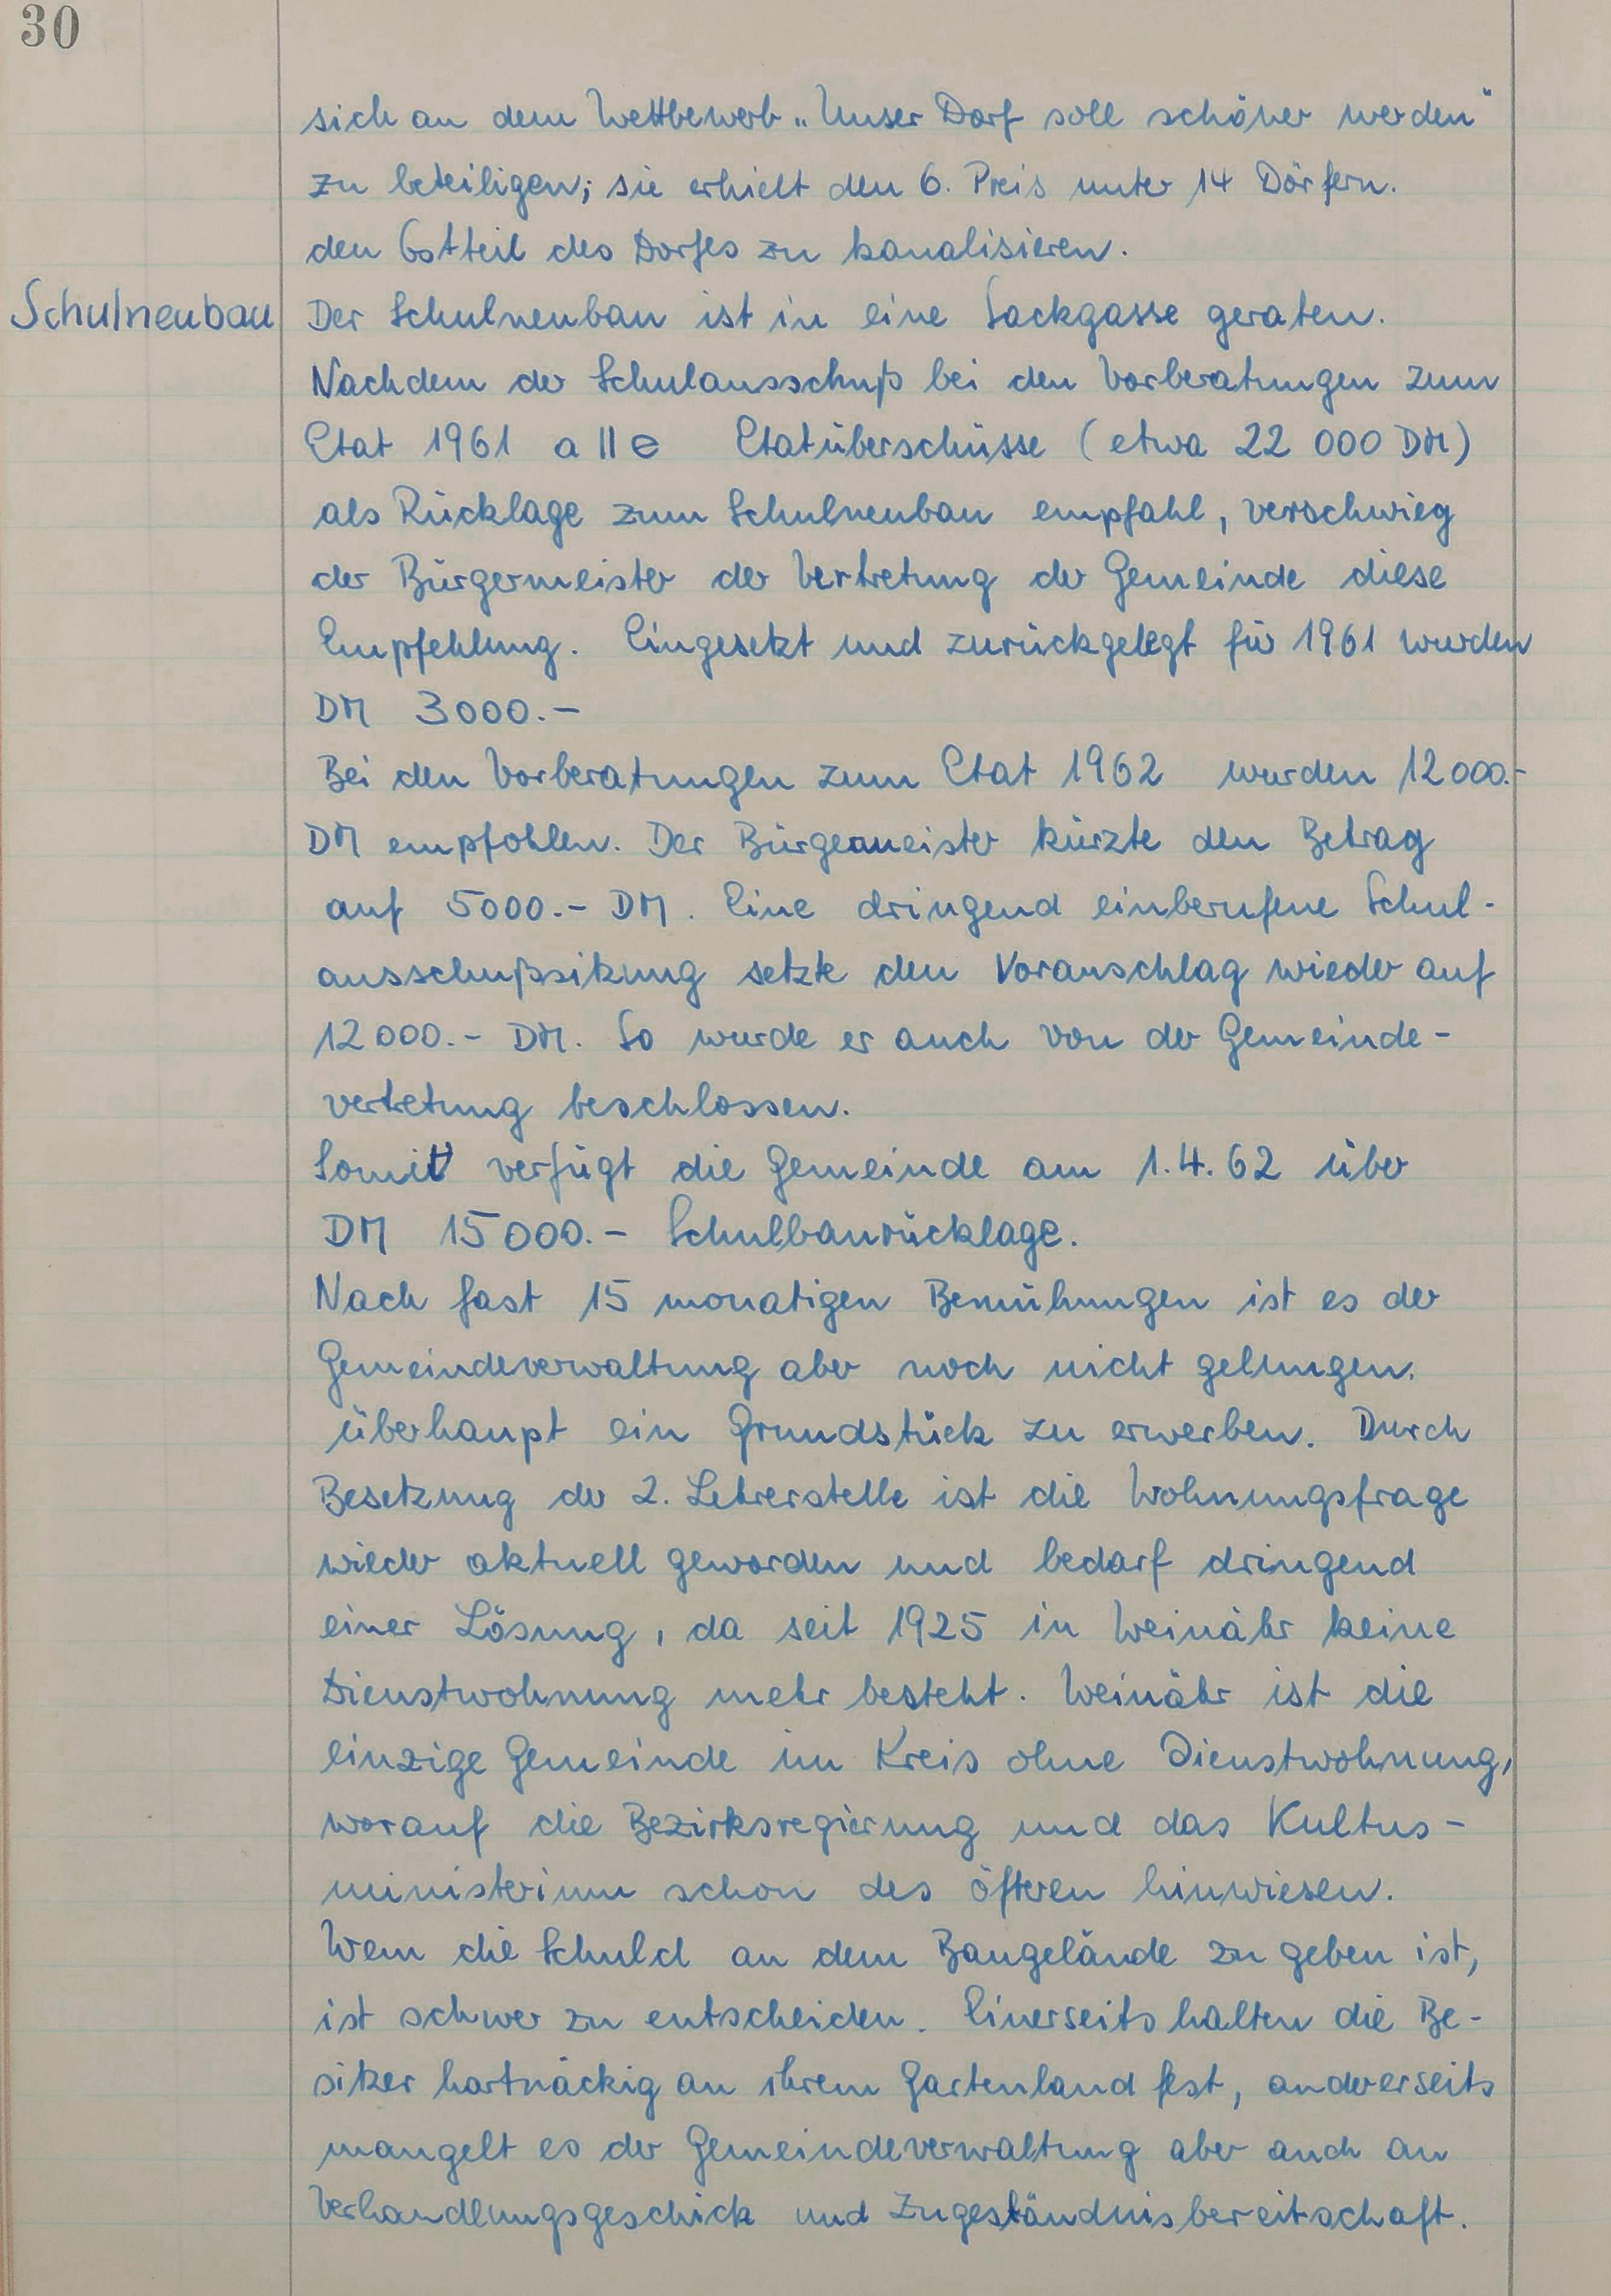 30
sich an dem Wettbewerb „Unser Dorf soll schöner werden"
zu beteiligen; sie erhielt den 6. Preis unter 14 Dörfern.
den Ostteil des Dorfes zu kanalisieren.
Schulneubau
Der Schulneubau ist in eine Sackgasse geraten.
Nachdem der Schulausschuß bei den Vorberatungen zum
Etat 1961 alle Etatüberschüsse (etwa 22 000 DM)
als Rücklage zum Schulneubau empfahl, verschwieg
der Bürgermeister der Vertretung der Gemeinde diese
Empfehlung. Eingesetzt und zurückgelegt für 1961 wurden
DM 3000.-
Bei den Vorberatungen zum Etat 1962 wurden 12000.-
DM empfohlen. Der Bürgermeister kürzte den Betrag
auf 5000.- DM. Eine dringend einberufene Schul-
ausschußsitzung setzte den Voranschlag wieder auf
12000.- DM. So wurde er auch von der Gemeinde-
vertretung beschlossen.
Somit verfügt die Gemeinde am 1.4.62 über
DM 15000.- Schulbaurücklage.
Nach fast 15 monatigen Bemühungen ist es der
Gemeindeverwaltung aber noch nicht gelungen.
überhaupt ein Grundstück zu erwerben. Durch
Besetzung der 2. Lehrerstelle ist die Wohnungsfrage
wieder aktuell geworden und bedarf dringend
einer Lösung, da seit 1925 in Weinähr keine
Dienstwohnung mehr besteht. Weinähr ist die
einzige Gemeinde im Kreis ohne Dienstwohnung,
worauf die Bezirksregierung und das Kultus-
ministerium schon des öfteren hinwiesen.
Wem die Schuld an dem Baugelände zu geben ist,
ist schwer zu entscheiden. Einerseits halten die Be-
sitzer hartnäckig an ihrem Gartenland fest, andererseits
mangelt es der Gemeindeverwaltung aber auch an
Verhandlungsgeschick und Zugeständnisbereitschaft.